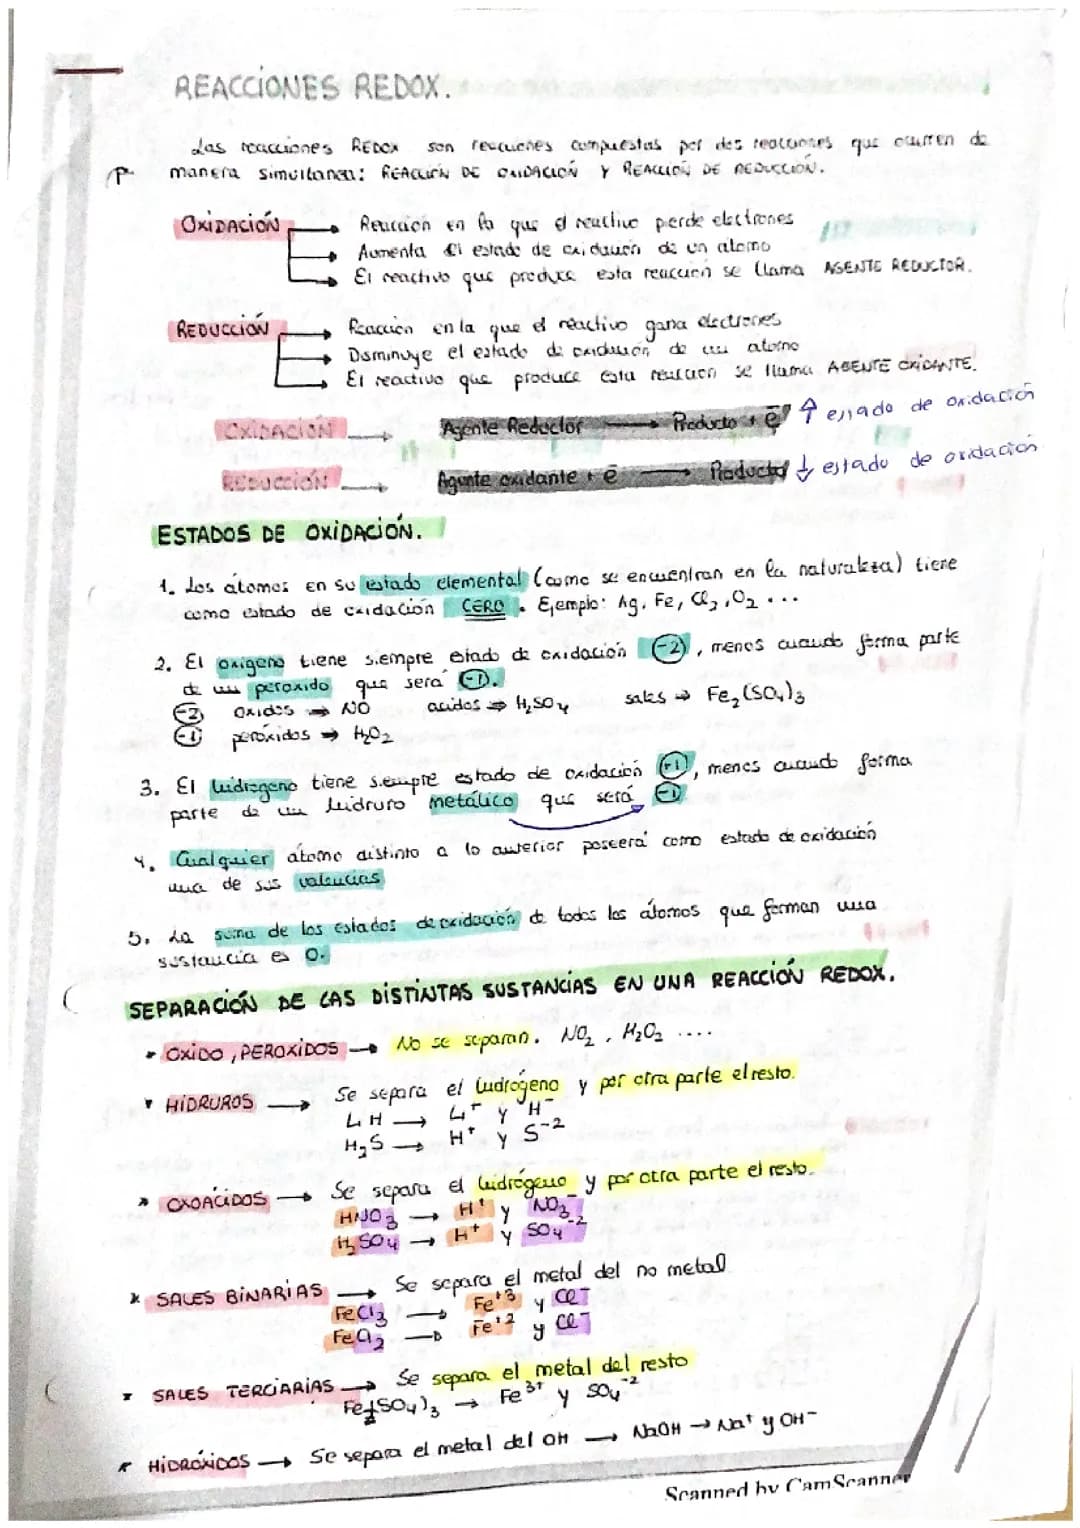 REACCIONES REDOX.
Las reacciones REDOX son reacciones compuestas por dos reacciones que ocurren de
manera simultanea: REACCIÓN DE OXIDACIÓN Y REACCIÓN DE REDUCCIÓN.
OXIDACIÓN → Reacción en la que el reactivo pierde electrones
→ Aumenta el estado de oxidación de un átomo
→ El reactivo que produce esta reacción se llama AGENTE REDUCTOR.
REDUCCIÓN → Reacción en la que el reactivo gana electrones
→ Disminuye el estado de oxidación de un atomo
→ El reactivo que produce esta reacción se llama AGENTE OXIDANTE.
OXIDACIÓN → Agente Reductor → Producto + ē ↑ estado de oxidación
REDUCCIÓN → Agente oxidante + ē → Producto ↓ estado de oxidación
ESTADOS DE OXIDACIÓN.
1. Los átomos en su estado elemental (como se encuentran en la naturaleza) tiene
como estado de oxidación CERO. Ejemplo: Ag, Fe, Cl₂, O₂ ...
2. El oxigeno tiene siempre estado de oxidación (-2), menos cuando forma parte
de un peroxido que será (-1).
(-2) oxidos → NO acidos → H₂SO₄ sales → Fe₂(SO₄)₃
(-1) peróxidos → H₂O₂
3. El hidrogeno tiene siempre estado de oxidación (+1), menos cuando forma
parte de un hidruro metálico que será (-1)
4. Cualquier átomo distinto a lo anterior poseerá como estado de oxidación
una de sus valencias
5. La suma de los estados de oxidación de todos los átomos que forman una
sustancia es 0.
SEPARACIÓN DE LAS DISTINTAS SUSTANCIAS EN UNA REACCIÓN REDOX.
OXIDO, PEROXIDOS → No se separan. NO₂, H₂O₂ ....
HIDRUROS → Se separa el hidrógeno y por otra parte el resto.
LiH → Li⁺ y H⁻
H₂S → H⁺ y S⁻²
OXOACIDOS → Se separa el hidrógeno y por otra parte el resto.
HNO₃ → H⁺ y NO₃⁻
H₂SO₄ → H⁺ y SO₄⁻²
SALES BINARIAS → Se separa el metal del no metal
FeCl₃ → Fe⁺³ y Cl⁻
FeCl₂ → Fe⁺² y Cl⁻
SALES TERCIARIAS → Se separa el metal del resto
Fe₂(SO₄)₃ → Fe³⁺ y SO₄⁻²
HIDRÓXIDOS → Se separa el metal del OH → NaOH → Na⁺ y OH⁻
Scanned by CamScanner